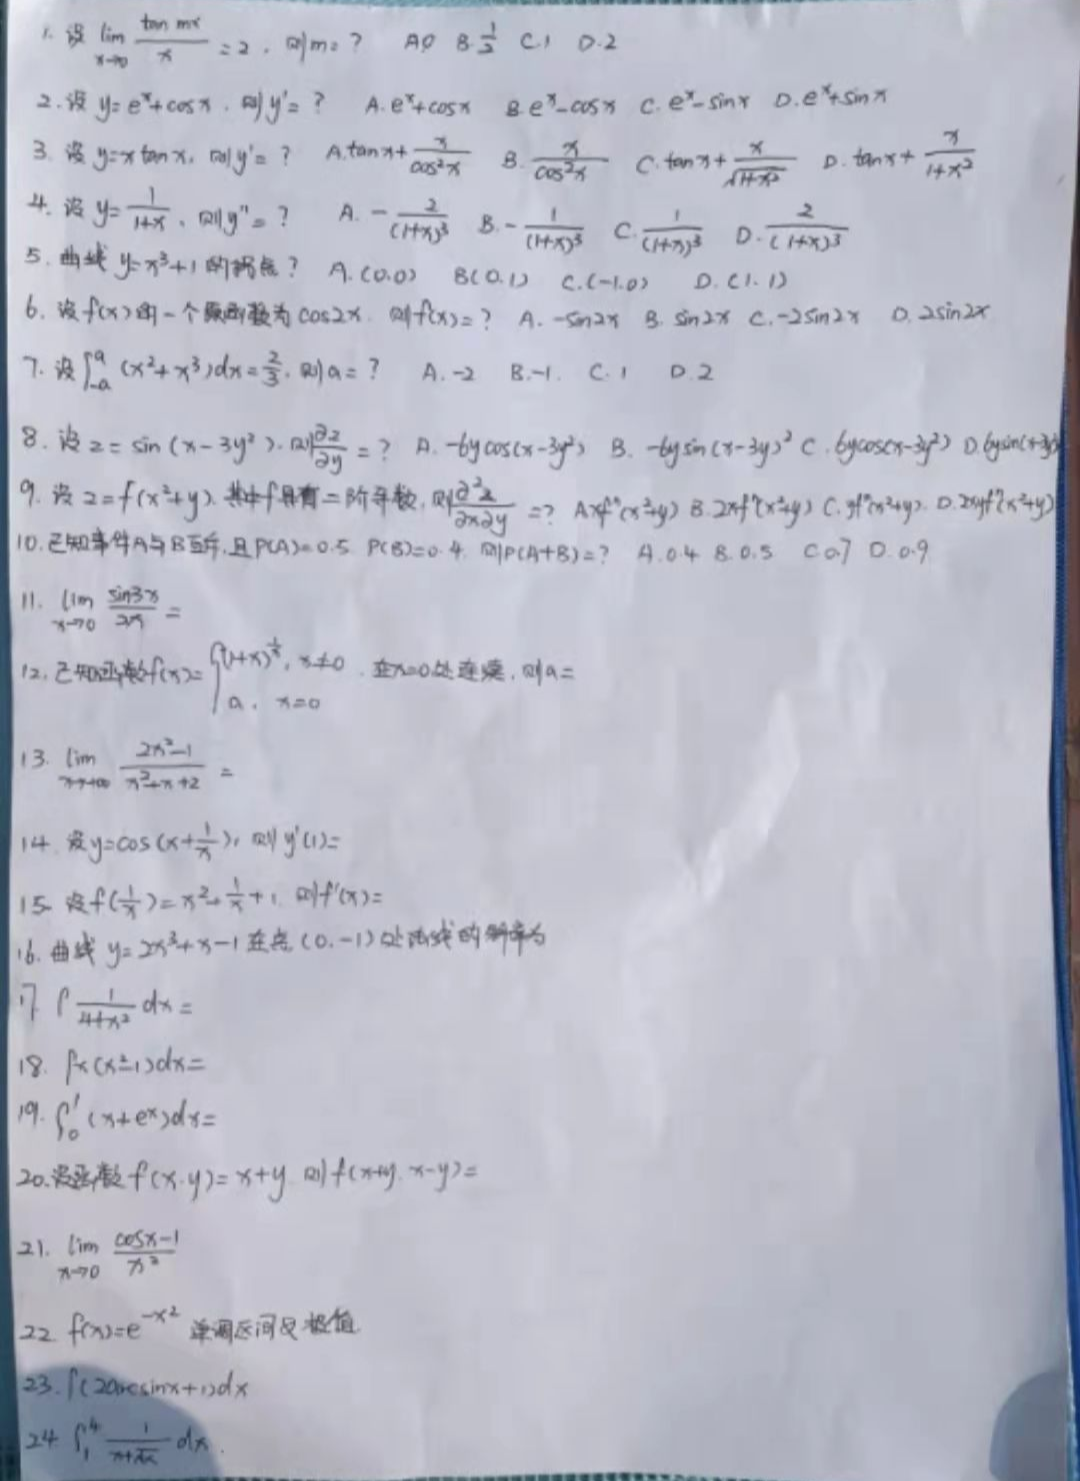 1. 设 lim x→0 tan mx / x = 2, 则m=? A.0 B.1/2 C.1 D.2
2.设 y=e^x+cosx, 则y'=? A.e^x+cosx B.e^x-cosx C.e^x-sinx D.e^x+sinx
3. 设 y=x tanx, 则y'=? A.tanx+x/cos²x B.x/cos²x C.tanx+x/√(1+x²) D.tanx+x/(1+x²)
4. 设 y=1/(1+x), 则y''=? A.-2/(1+x)³ B.-1/(1+x)³ C.1/(1+x)³ D.2/(1+x)³
5. 曲线 y=x³+1的拐点? A.(0.0) B(0.1) C.(-1.0) D.(1.1)
6. 设f(x)的一个原函数为cos2x. 则f(x)=? A.-sin2x B.sin2x C.-2sin2x D.2sin2x
7. 设∫_{-a}^{a}(x²+x³)dx=2/3, 则a=? A.-2 B.-1. C.1 D.2
8. 设z=sin(x-3y²). 则∂z/∂y=? A.-6ycos(x-3y²) B.-6ysin(x-3y)² C.6ycos(x-3y²) D.6ysin(x-3y
9. 设z=f(x²+y). 其中f具有二阶导数, 则∂²z/∂x∂y=? A.xf''(x²+y) B.2xf''(x²+y) C.yf''(x²+y). D.2xyf''(x²+y)
10.已知事件A与B互斥,且P(A)=0.5 P(B)=0.4. 则P(A+B)=? A.0.4 B.0.5 C0.7 D.0.9
11. lim x→0 sin3x/2x =
12. 已知函数f(x)={(1+x)^{1/x}, x≠0 . 在x=0处连续, 则a=
a. x=0
13. lim x→∞ (2x²-1)/(x²+x+2) =
14. 设y=cos(x+1/x), 则y'(1)=
15. 设f(1/x)=x²+1/x+1, 则f'(x)=
16. 曲线 y=2x³+x-1在点(0.-1)处法线的斜率为
17. ∫ 1/(4+x²) dx=
18. ∫x(x²-1)dx=
19. ∫_0^1 (x+e^x)dx=
20.设函数f(x.y)=x+y 则f(x+y. x-y)=
21. lim x→0 (cosx-1)/x²
22 f(x)=e^{-x²} 单调区间及极值
23. ∫(2arcsinx+1)dx
24 ∫_1^4 1/(x+√x) dx.